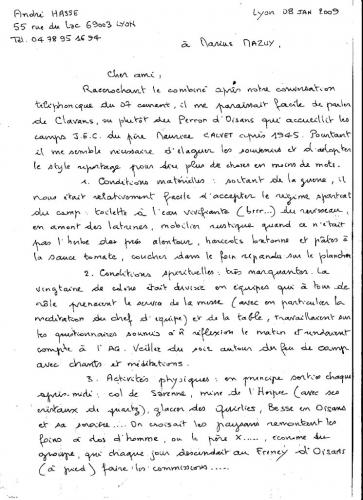 André HASSE
55 rue du Lac 69003 LYON
Tél. 04 78 95 16 94
Lyon 08 JAN 2009
à Marius MAZUY,
Cher ami,
Raccrochant le combiné après notre conversation
téléphonique du 07 courant, il me paraissait facile de parler
de Clavans, ou plutôt du Perron d'Oisans qui accueillit les
camps J.E.C. du père Maurice CALVET après 1945. Pourtant
il me semble nécessaire d'élaguer les souvenirs et d'adopter
le style reportage pour dire plus de choses en moins de mots.
1. Conditions matérielles : sortant de la guerre, il
nous était relativement facile d'accepter le régime spartiate
du camp : toilette à l'eau vivifiante (brrr...) du ruisseau,
en amont des latrines, mobilier rustique quand ce n'était
pas l'herbe des prés alentour, haricots bretonne et pâtes à
la sauce tomate, coucher dans le foin répandu sur le plancher
2. Conditions spirituelles : très marquantes. La
vingtaine de colons était divisée en équipes qui à tour de
rôle prenaient le service de la messe (avec en particulier la
méditation du chef d'équipe) et de la table, travaillaient sur
les questionnaires soumis à R réflexion le matin et rendaient
compte à l'AG. Veillée du soir autour du feu de camp
avec chants et méditations.
3. Activités physiques : en principe sorties chaque
après-midi : col de Sarenne, mine de l'Herpie (avec ses
cristaux de quartz), glacier des Quirlies, Besse en Oisans
et sa .... On croisait les paysans remontant les
foins à dos d'homme, ou le père X....., économe du
groupe, qui chaque jour descendait au Freney d'Oisans
(à pied) faire les commissions.....